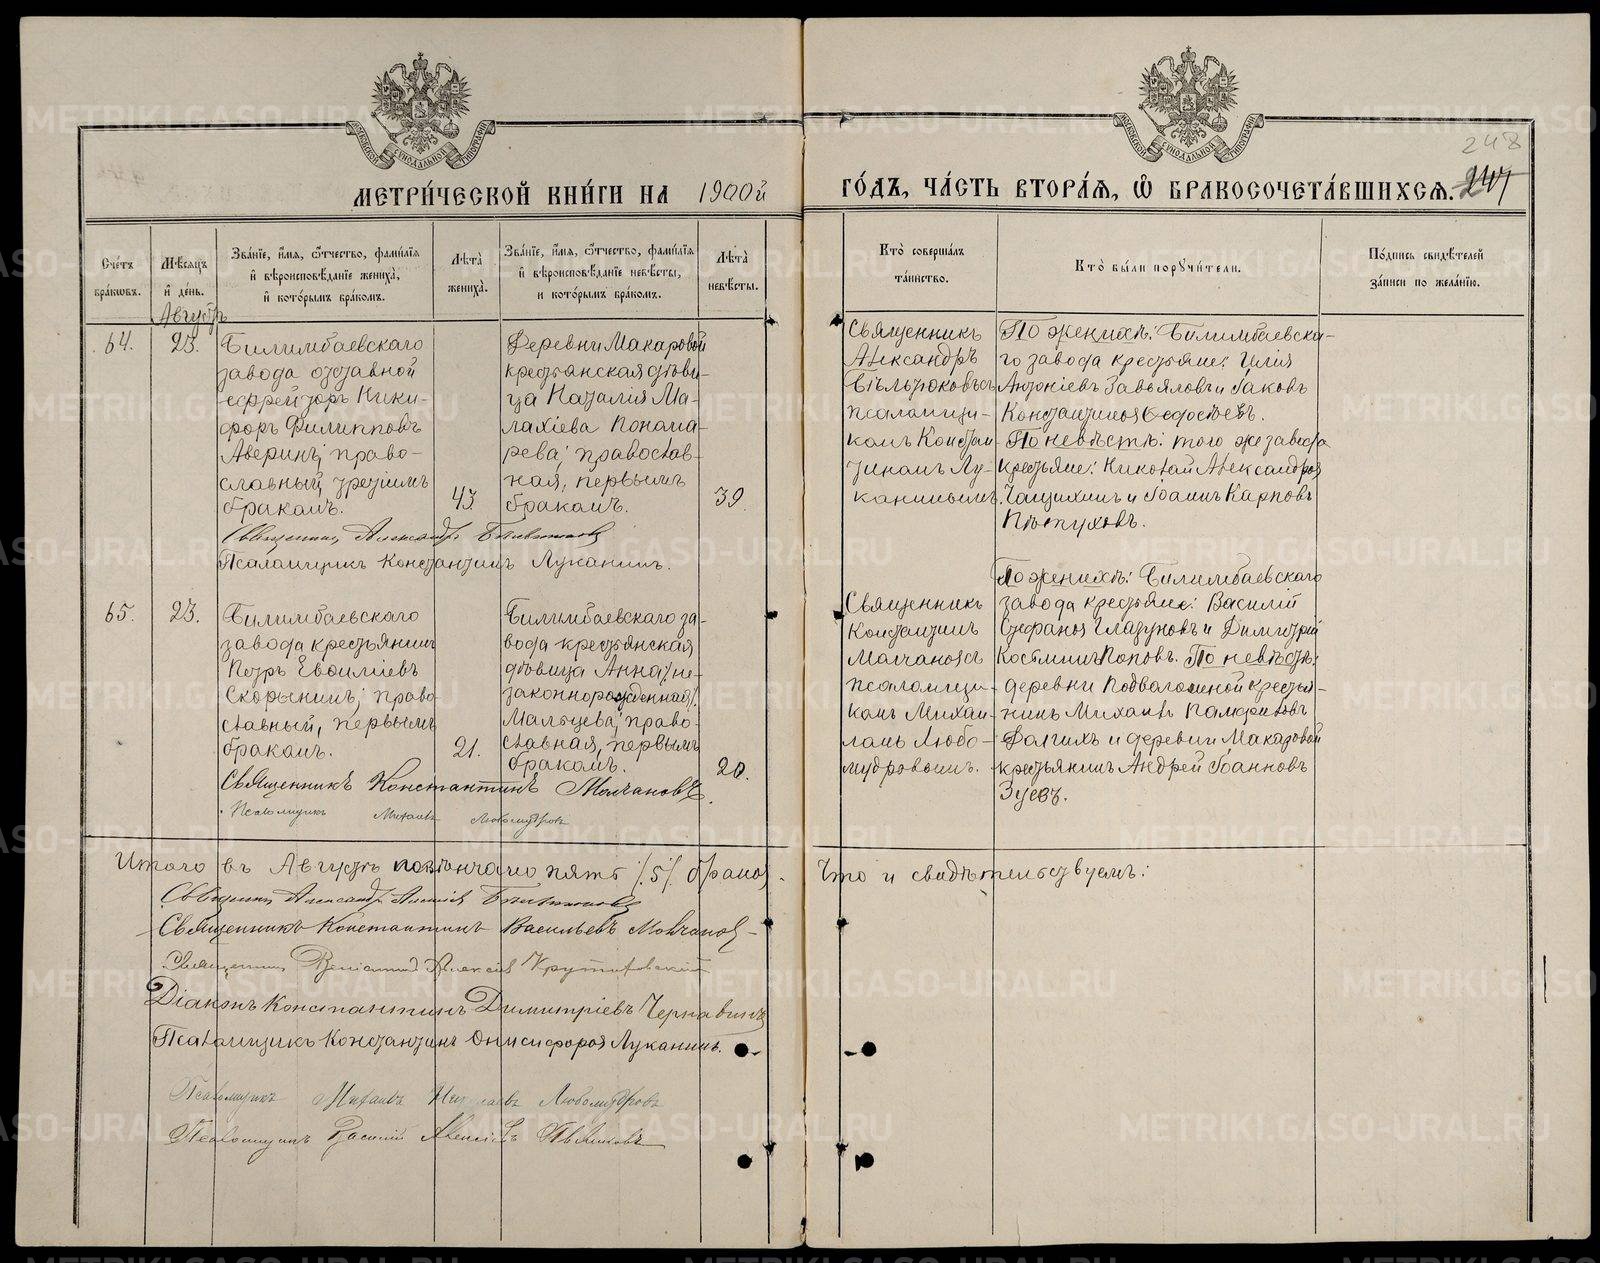 248
247
МОСКОВСКОЙ СѴНОДАЛЬНОЙ ТИПОГРАФІИ
МОСКОВСКОЙ СѴНОДАЛЬНОЙ ТИПОГРАФІИ
МЕТРИ́ЧЕСКОЙ КНИ́ГИ НА 1900й ГО́ДЪ, ЧА́СТЬ ВТОРА́Ѧ, Ѡ҆ БРАКОСОЧЕТА́ВШИХСѦ.
Сче́тъ
бра́кѡвъ.
Мѣ́сѧцъ
и҆ де́нь.
Августъ
Зва́нїе, и҆́мѧ, ѻ҆́тчество, фами́лїѧ
и҆ вѣроисповѣ́данїе жениха̀,
и҆ кото́рымъ бра́комъ.
Лѣ́та
жениха̀.
Зва́нїе, и҆́мѧ, ѻ҆́тчество, фами́лїѧ
и҆ вѣроисповѣ́данїе невѣ́сты,
и кото́рымъ бра́комъ.
Лѣ́та
невѣ́сты.
Кто̀ соверша́лъ
та́инство.
Кто̀ бы́ли порꙋчи́тели.
По́дпись свидѣ́телей
за́писи по жела́нїю.
64.
23.
Билимбаевскаго
завода отставной
ефрейторъ Ники-
форъ Филипповъ
Аверинъ, право-
славный, третьимъ
бракомъ.
43.
Деревни Макаровой
крестьянская дѣви-
ца Наталія Ма-
лахіева Понома-
рева; православ-
ная, первымъ
бракомъ.
39.
Священникъ
Александръ
псаломщи-
комъ Констан-
тиномъ Лу-
канинымъ.
По женихѣ: Билимбаевска-
го завода крестьяне: Илія
Антоніевъ Завьяловъ и Іаковъ
Константиновъ Ѳедосѣевъ.
По невѣстѣ: того же завода
крестьяне: Николай Александровъ
Чащихинъ и Іоаннъ Карповъ
Пѣтуховъ.
Священникъ Александръ
Псаломщикъ Константинъ Луканинъ.
65.
23.
Билимбаевскаго
завода крестьянинъ
Петръ Евсигніевъ
Скорынинъ; право-
славный, первымъ
бракомъ.
21.
Билимбаевскаго за-
вода крестьянская
дѣвица Анна /не-
законнорожденная/
Мальцева, право-
славная, первымъ
бракомъ.
20.
Священникъ
Константинъ
Молчановъ съ
псаломщи-
комъ Михаи-
ломъ Любо-
мудровымъ.
По женихѣ: Билимбаевскаго
завода крестьяне: Василій
Стефановъ Глазуновъ и Димитрій
Костминъ Поповъ. По невѣстѣ:
деревни Подволошной крестья-
нинъ Михаилъ Памфиловъ
Долгихъ и деревни Макаровой
крестьянинъ Андрей Іоанновъ
Зуевъ.
Священникъ Константинъ Молчановъ.
Псаломщикъ Михаилъ Любомудровъ
Итого въ Августѣ повѣнчано пять /5/ браковъ. Что и свидѣтельствуемъ:
Священникъ Александръ Алексіевъ
Священникъ Константинъ Васильевъ Молчановъ
Священникъ Веніаминъ Алексіевъ
Діаконъ Константинъ Димитріевъ Чернавинъ
Псаломщикъ Константинъ Онисифоровъ Луканинъ.
Псаломщикъ Михаилъ Николаевъ Любомудровъ
Псаломщикъ Василій Алексіевъ